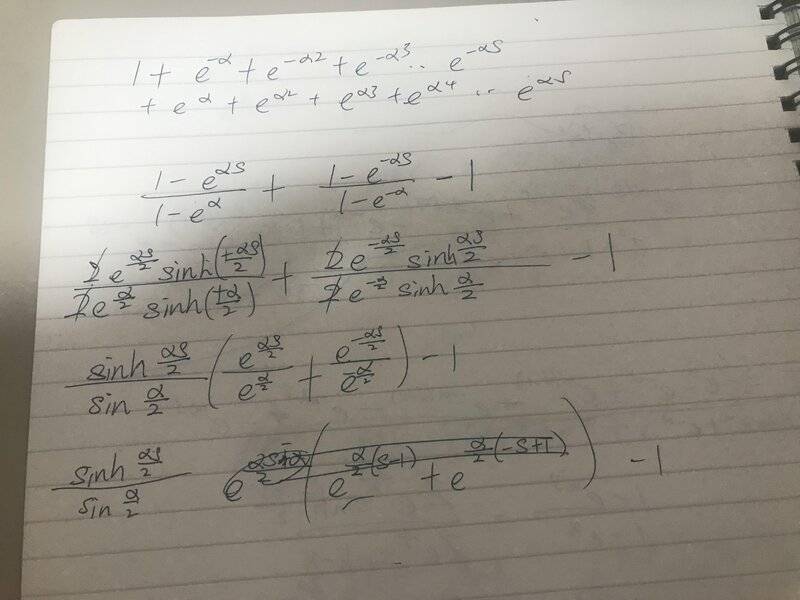 1 + e^{-α} + e^{-α2} + e^{-α3} .. e^{-αS}
+ e^{α} + e^{α2} + e^{α3} + e^{α4} .. e^{αS}
\frac{1 - e^{αS}}{1 - e^{α}} + \frac{1 - e^{-αS}}{1 - e^{-α}} - 1
\frac{2e^{\frac{αS}{2}} sinh(\frac{+αS}{2})}{2e^{\frac{α}{2}} sinh(\frac{+α}{2})} + \frac{2e^{-\frac{αS}{2}} sinh\frac{αS}{2}}{2e^{-\frac{α}{2}} sinh\frac{α}{2}} - 1
\frac{sinh\frac{αS}{2}}{sin\frac{α}{2}} (\frac{e^{\frac{αS}{2}}}{e^{\frac{α}{2}}} + \frac{e^{-\frac{αS}{2}}}{e^{-\frac{α}{2}}}) - 1
\frac{sinh\frac{αS}{2}}{sin\frac{α}{2}} (e^{\frac{α}{2}(S-1)} + e^{\frac{α}{2}(-S+1)}) - 1